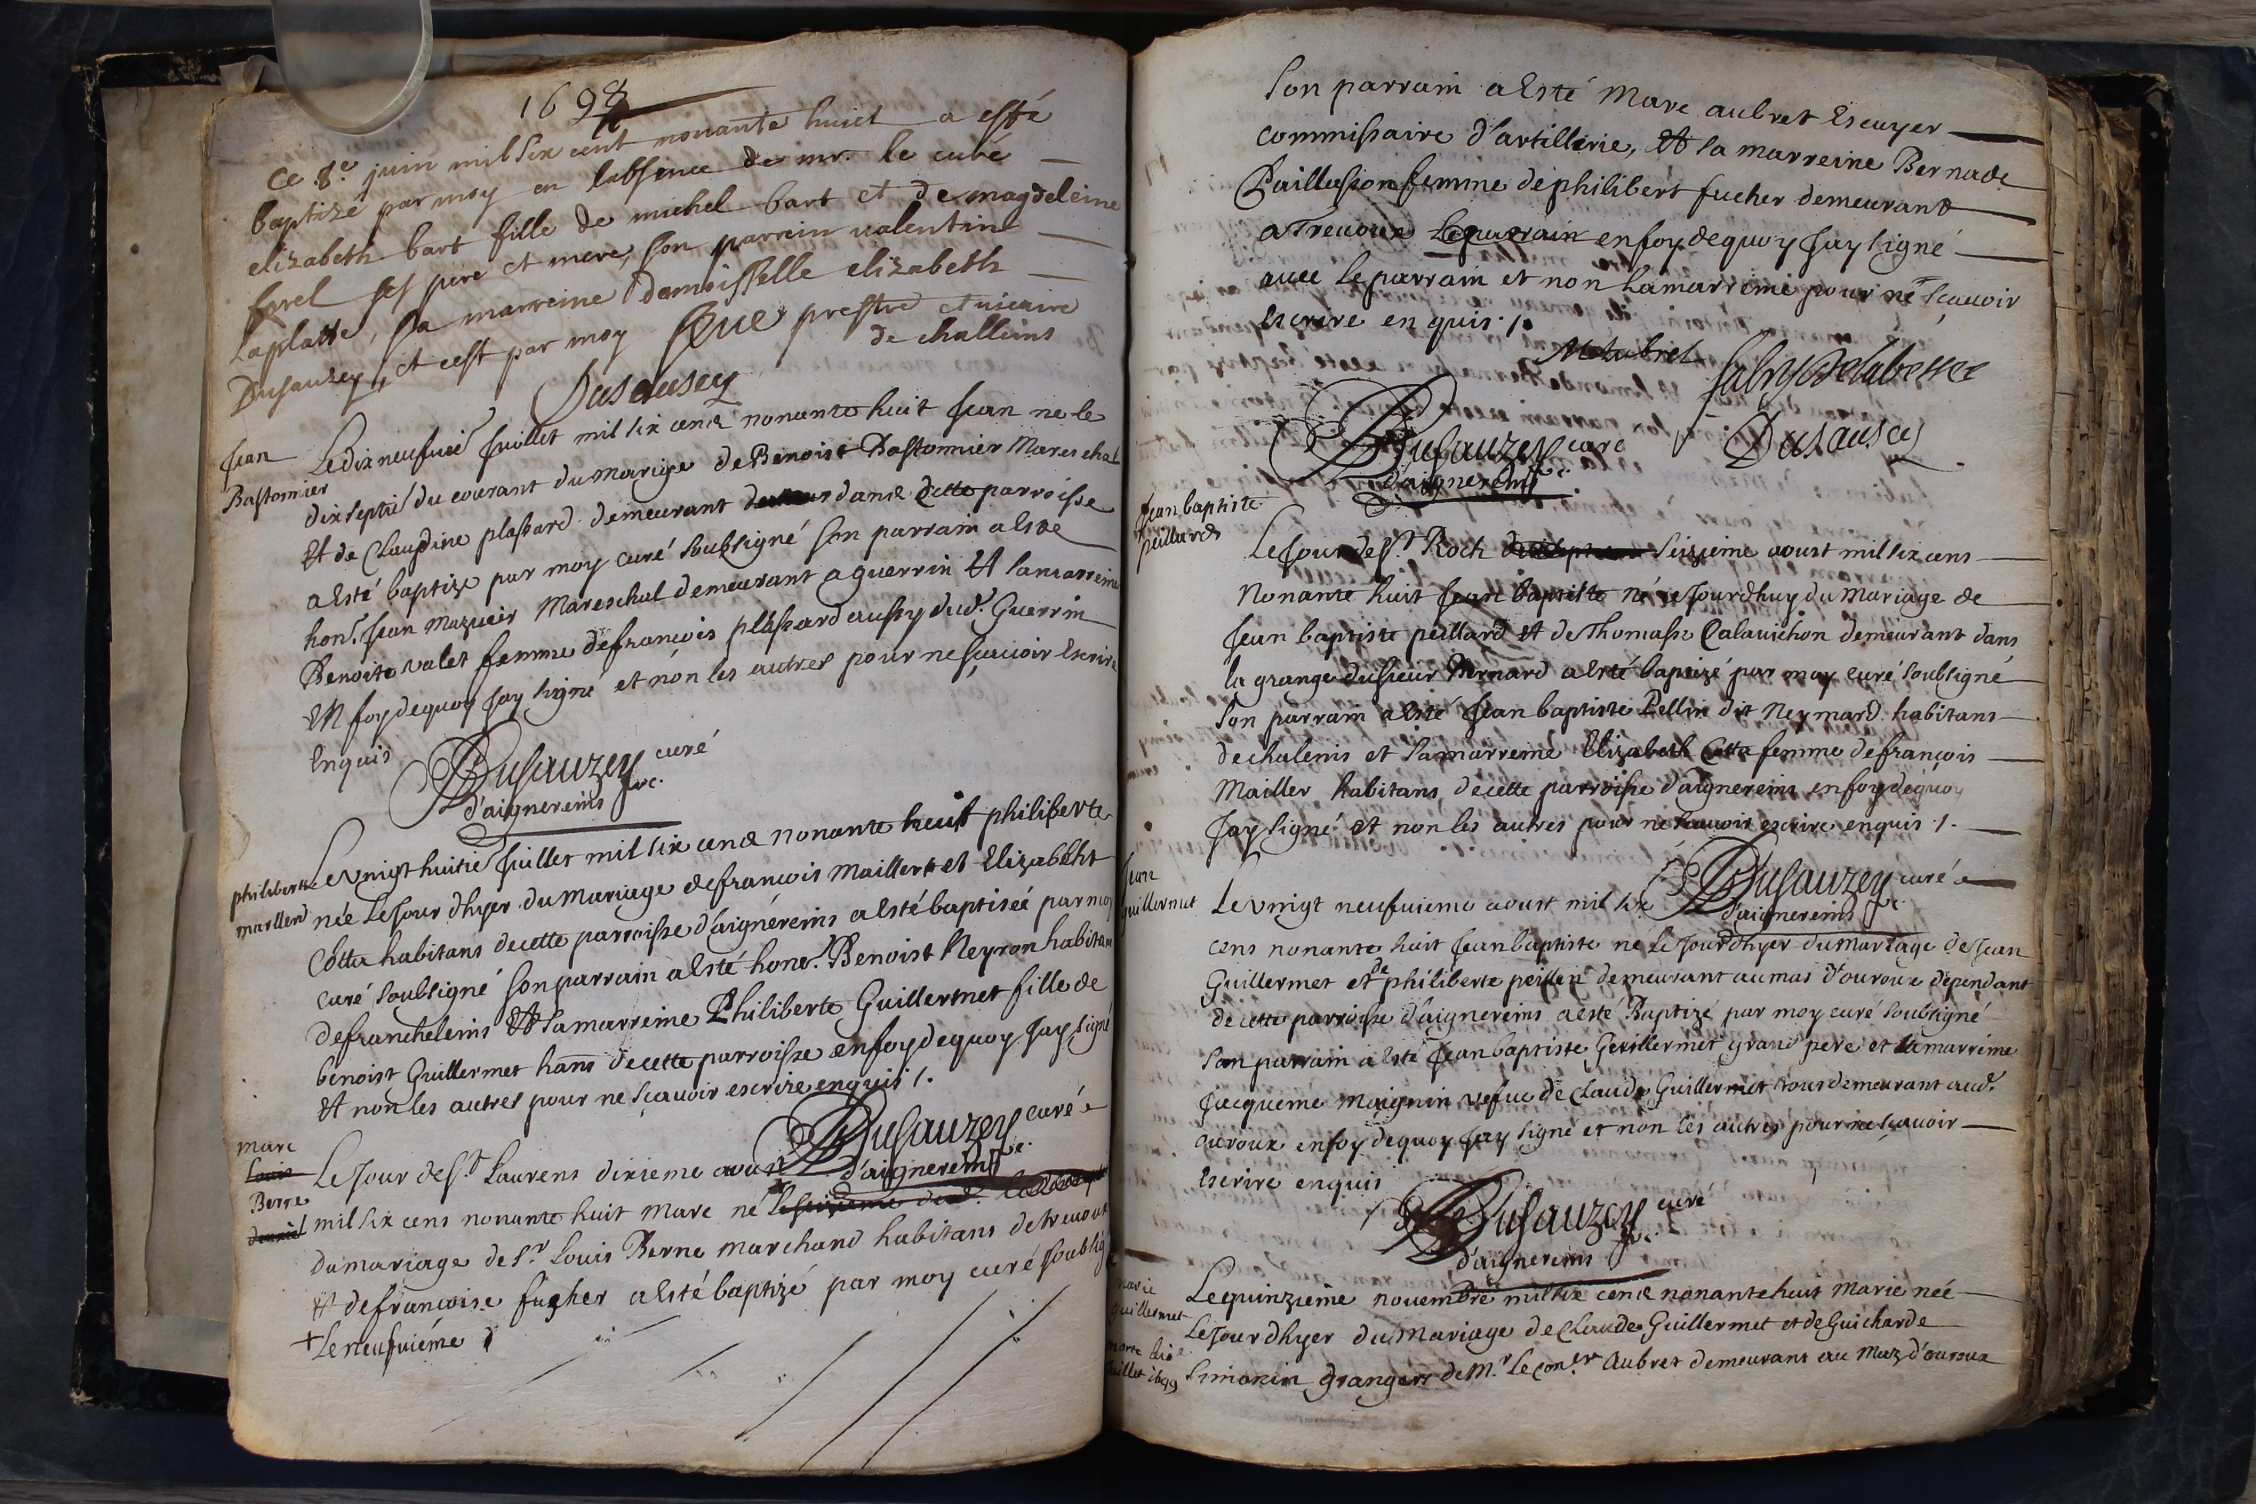 1698
Ce 8e juin mil six cent nonante huict a esté
baptizé par moy en labsence de mr. le curé
elizabeth bart fille de michel bart et de magdeleine
ses pere et mere, son parrein valentin
Laplatte, sa marreine demoisselle elizabeth
Dusauzey, et cest par moy prestre et vicaire
de challeins
Dusausey
Jean
Bastonnier
Le dix neufuie Juillet mil six cens nonante huit Jean ne le
dix septie du courant du mariage de Benoist Bastonnier Mareschal
Et de Claudine plassard demeurant dans cette parroisse
a Esté baptize par moy curé soubsigné son parrain a Esté
hon. Jean mazuier Mareschal demeurant a guerrin Et sa marreine
Benoite valet femme de francois plassard aussy dud. Guerrin
En foy de quoy Jay signé et non les autres pour ne sçauoir Escrire
Enquis
Dusauzey curé
d'aignereins
philiberte
maillerd
Le vnigt huitie Juillet mil six cens nonante huit philiberte
née Le Jour dhyer du Mariage de francois Maillert et Elizabeht
Cotta habitans de cette parroisse d'aignéreins a Esté baptiseé par moy
curé soubsigné son parrain a Esté hone. Benoist Neyron habitan
de francheleins Et sa marreine Philiberte Guillermet fille de
benoist Guillermet hans de cette parroisse en foy de quoy Jay signé
Et non les autres pour ne sçauoir escrire enquis /.
Dusauzey curé
d'aignereins
marc
Louis
Berne
Le Jour de St. Laurens dixieme aoust
mil six cens nonante huit Marc né
du mariage de Sr. Louis Berne marchand habitans de trevoux
Et de francoise fucher a Esté baptizé par moy curé soubsig
+ Le neufuiéme
Son parrain a Esté Marc aubret Escuyer
commissaire d'artillerie, Et sa marreine Bernade
Paillasson femme de philibert fucher demeurant
a Trevoux Le parrain en foy de quoy Jay signé
avec le parrain et non la marreine pour ne sçauoir
Escrire enquis /.
MAubret
Dusauzey curé
d'aignereins
Dusausey
Jean baptiste
peillard
Le Jour de St. Roch seizieme aoust mil six cens
Nonante huit Jean baptiste né ce Jourdhuy du Mariage de
Jean baptiste peillard Et de Thomasse Calauichon demeurant dans
la grange du sieur Bernard a Esté baptizé par moy curé soubsigné
Son parrain a Esté Jean baptiste Pellin dit Neymard habitans
de chaleins et sa marreine Elizabeth Cotta femme de francois
Mailler habitans de cette parroisse d'aignereins en foy de quoy
Jay signé et non les autres pour ne scauoir escrire enquis /.
Dusauzey curé
d'aignereins
Jean
guillermet
Le vnigt neufuieme aoust mil six
cens nonante huit Jean baptiste né Le Jour dhyer du mariage de Jean
Guillermet et de philiberte peillen demeurant au mas d'ouroux dépendant
de cette parroisse d'aignereins a esté Baptizé par moy curé soubsigné
son parrain a Esté Jean baptiste Guillermet grand pere et sa marréine
Jacqueme Maignin vefue de Claude Guillermet tous demeurant aud.
ouroux en foy de quoy Jay signe et non les autres pour ne sçauoir
Escrire enquis
Dusauzey curé
d'aignereins
marie
guillermet
morte
Juillet 1699
Le quinzieme nouembre mil six cens nonante huit Marie née
Le Jour dhyer du Mariage de Claude Guillermet et de Guicharde
Simonin grangers de Mr. Le coner Aubret demeurant au Maz d'ouroux